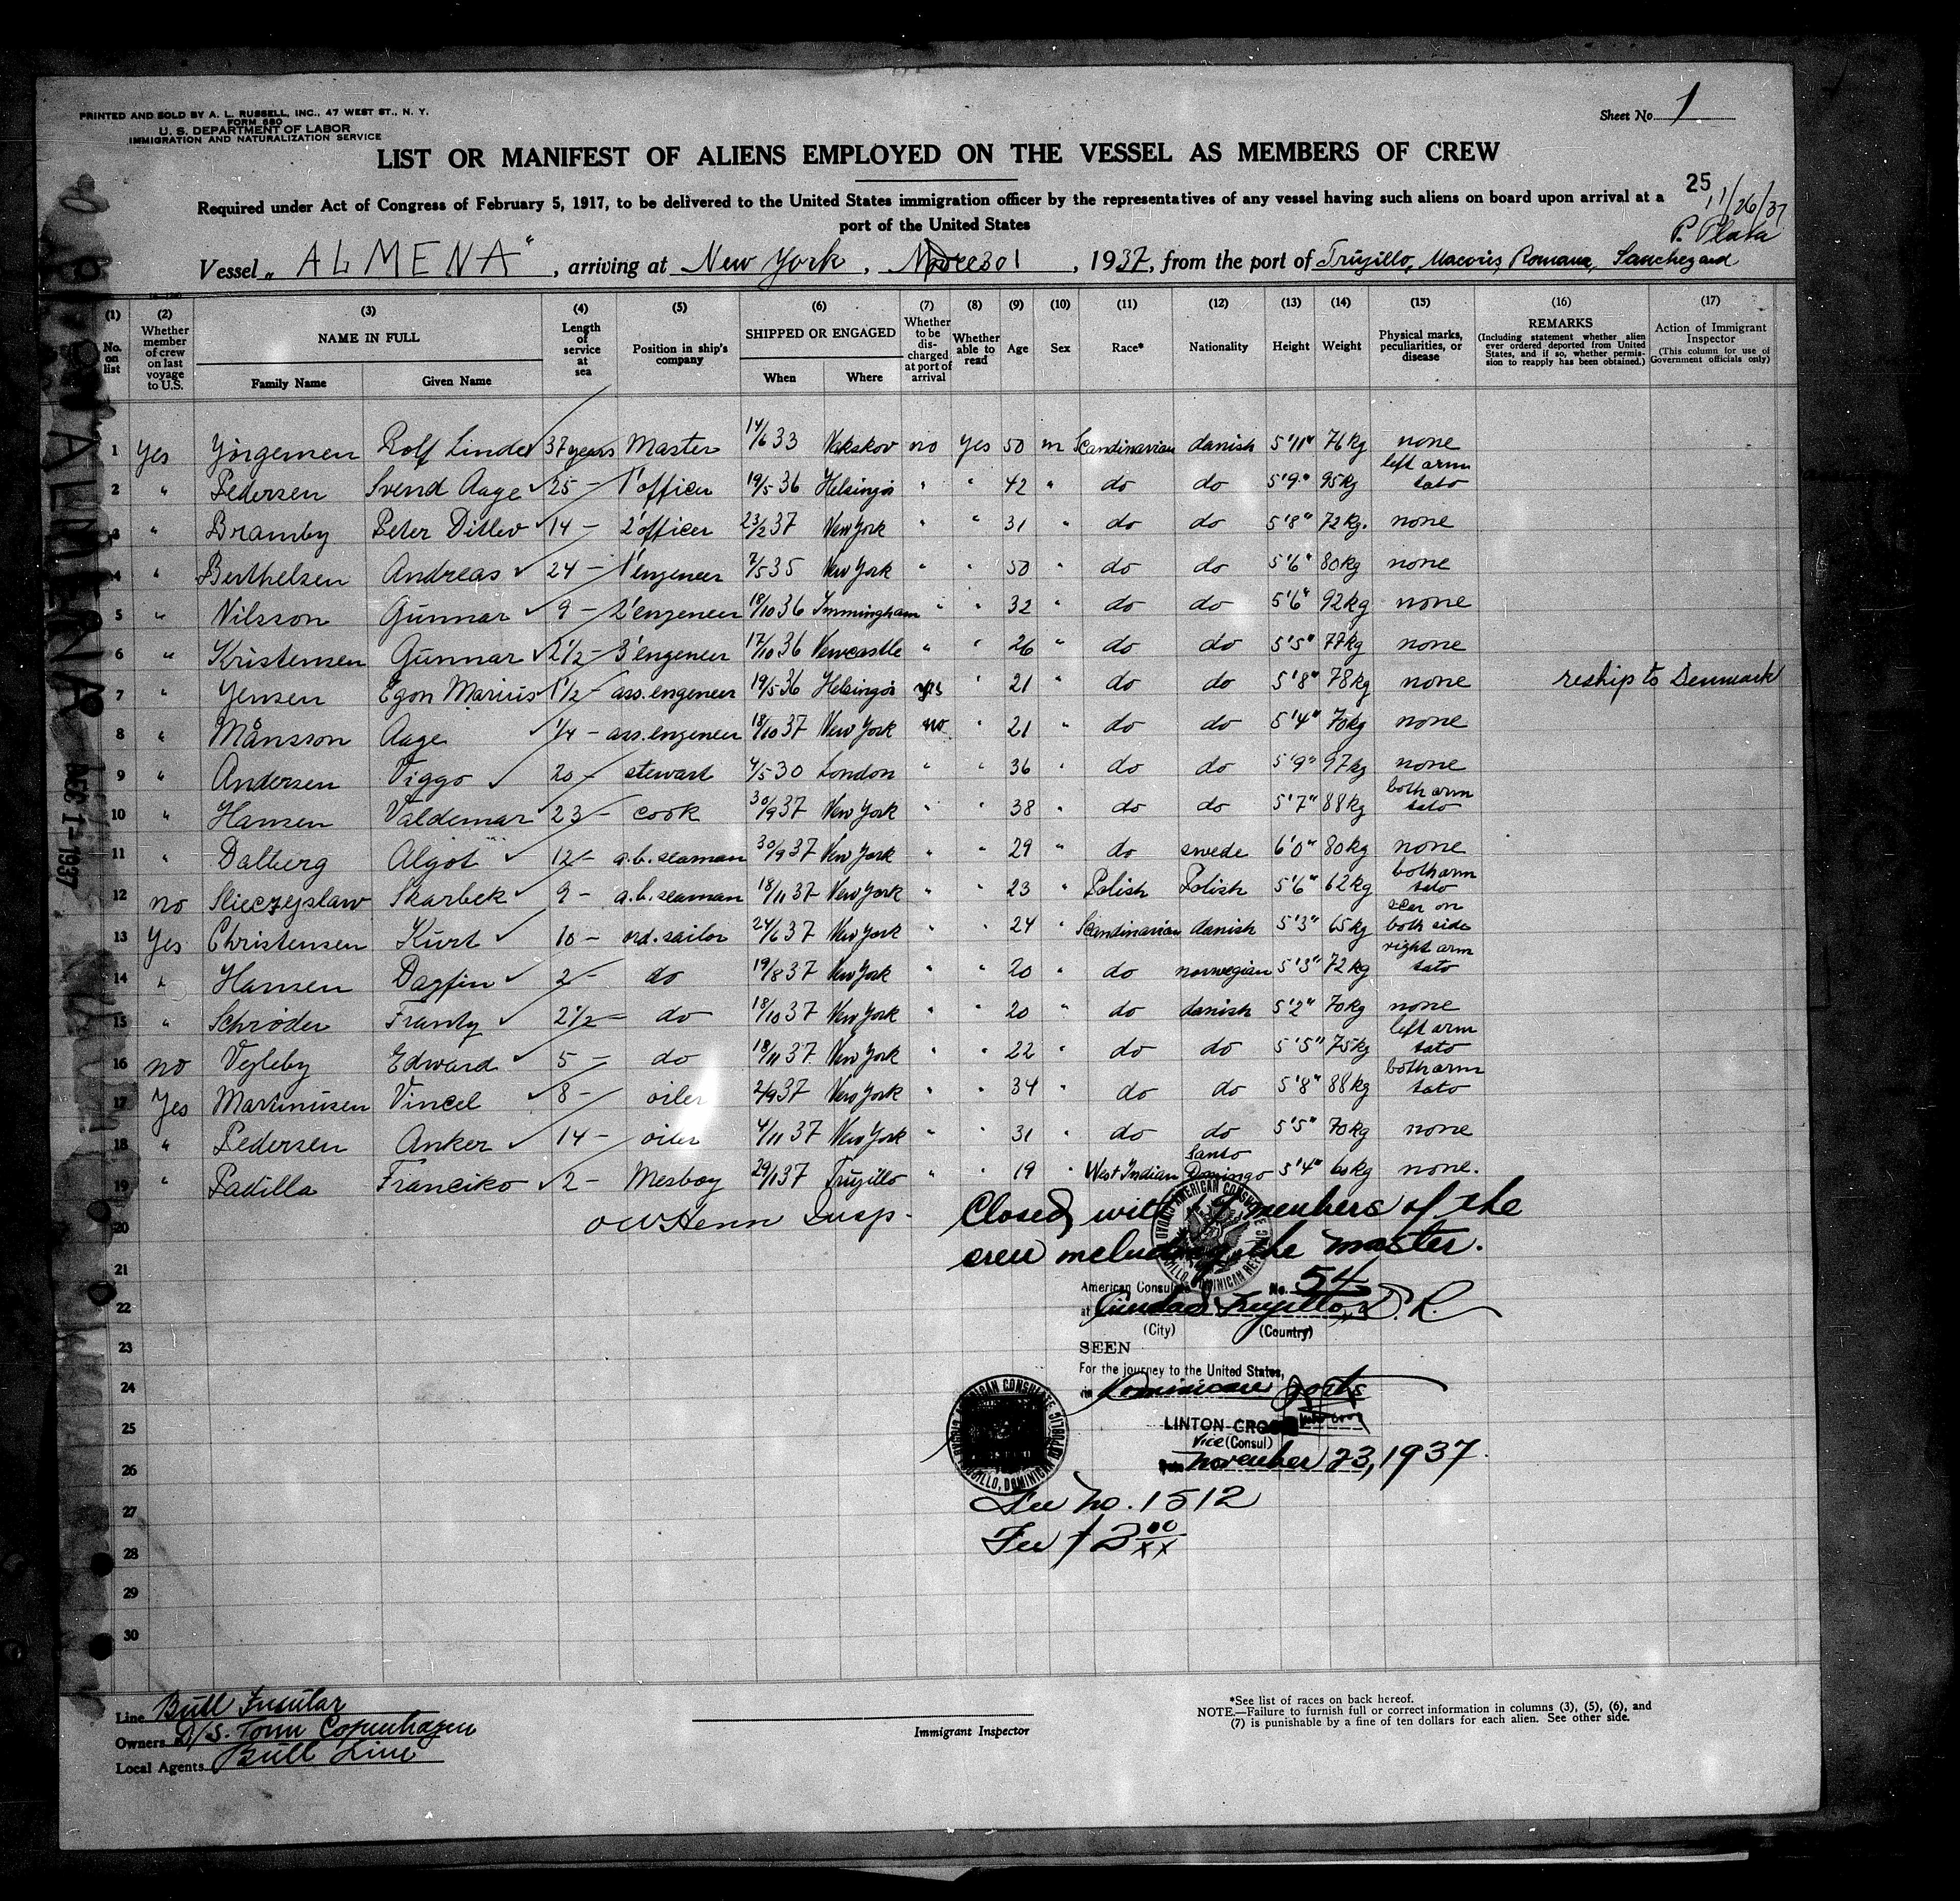 PRINTED AND SOLD BY A. L. RUSSELL, INC., 47 WEST ST., N. Y.
FORM 680
U. S. DEPARTMENT OF LABOR
IMMIGRATION AND NATURALIZATION SERVICE
Sheet No. 1
LIST OR MANIFEST OF ALIENS EMPLOYED ON THE VESSEL AS MEMBERS OF CREW
Required under Act of Congress of February 5, 1917, to be delivered to the United States immigration officer by the representatives of any vessel having such aliens on board upon arrival at a
port of the United States
25
11/26/37
P. Plata
Vessel "ALMENA", arriving at New York, 1937, from the port of Trujillo, Macoris, Romana, Sanchez and
(1) No. on list
(2) Whether member of crew on last voyage to U.S.
(3) NAME IN FULL Family Name Given Name
(4) Length of service at sea
(5) Position in ship's company
(6) SHIPPED OR ENGAGED When Where
(7) Whether to be discharged at port of arrival
(8) Whether able to read
(9) Age
(10) Sex
(11) Race*
(12) Nationality
(13) Height
(14) Weight
(15) Physical marks, peculiarities, or disease
(16) REMARKS (Including statement whether alien ever ordered deported from United States, and if so, whether permission to reapply has been obtained.)
(17) Action of Immigrant Inspector (This column for use of Government officials only)
1 Yes Yörgensen Rolf Linde 37 years Master 14/6 33 Nakskov no Yes 50 m Scandinavian danish 5'11" 76kg none
2 " Pedersen Svend Aage 25 - 1'officer 19/5 36 Helsingör " " 42 " do do 5'9" 95kg left arm tato
3 " Bramby Peter Ditlev 14 - 2'officer 23/2 37 New York " " 31 " do do 5'8" 72kg. none
4 " Berthelsen Andreas 24 - 1'engeneer 7/5 35 New York " " 50 " do do 5'6" 80kg none
5 " Nilsson Gunnar 9 - 2'engeneer 18/10 36 Immingham " " 32 " do do 5'6" 92kg none
6 " Kristensen Gunnar 2 1/2 - 3'engeneer 17/10 36 Newcastle " " 26 " do do 5'5" 77kg none
7 " Yensen Egon Marius 1 1/2 - ass. engeneer 19/5 36 Helsingör yes " 21 " do do 5'8" 78kg none reship to Denmark
8 " Månsson Aage 1/4 - ass. engeneer 18/10 37 New York no " 21 " do do 5'4" 70kg none
9 " Andersen Viggo 20 - stewart 4/5 30 London " " 36 " do do 5'9" 97kg none
10 " Hansen Valdemar 23 - cook 30/9 37 New York " " 38 " do do 5'7" 88kg both arm tato
11 " Dalberg Algot 12 - a.b. seaman 30/9 37 New York " " 29 " do swede 6'0" 80kg none
12 no Slieczyslaw Skarbek 9 - a.b. seaman 18/11 37 New York " " 23 " Polish Polish 5'6" 62kg both arm tato
13 Yes Christensen Kurt 10 - ord. sailor 24/6 37 New York " " 24 " Scandinavian danish 5'3" 65kg scar on both side
14 " Hansen Dagfin 2 - do 19/8 37 New York " " 20 " do norwegian 5'3" 72kg right arm tato
15 " Schröder Frantz 2 1/2 - do 18/10 37 New York " " 20 " do danish 5'2" 70kg none
16 no Vejleby Edward 5 - do 18/11 37 New York " " 22 " do do 5'5" 75kg left arm tato
17 Yes Martinusen Vincel 8 - oiler 2/9 37 New York " " 34 " do do 5'8" 88kg both arm tato
18 " Pedersen Anker 14 - oiler 4/11 37 New York " " 31 " do do 5'5" 70kg none
19 " Padilla Franciko 2 - Mesboy 29/1 37 Trujillo " " 19 " West Indian Santo Domingo 5'4" 60kg none.
20 Insp. Closed with members of the
crew including the master.
21
American Consulate No. 54
22 at Ciudad Trujillo, D.R.
(City) (Country)
23 SEEN
For the journey to the United States,
24 via Dominican ports
25 LINTON CROOK
Vice (Consul)
26 November 23, 1937.
27 See no. 1512
28 Fee $2 00/xx
29
30
AMERICAN CONSULATE
CIUDAD TRUJILLO, DOMINICAN REPUBLIC
ALMENA
DEC 1-1937
Line Bull Insular
Owners D/S. Torm Copenhagen
Local Agents Bull Line
Immigrant Inspector
*See list of races on back hereof.
NOTE.—Failure to furnish full or correct information in columns (3), (5), (6), and
(7) is punishable by a fine of ten dollars for each alien. See other side.